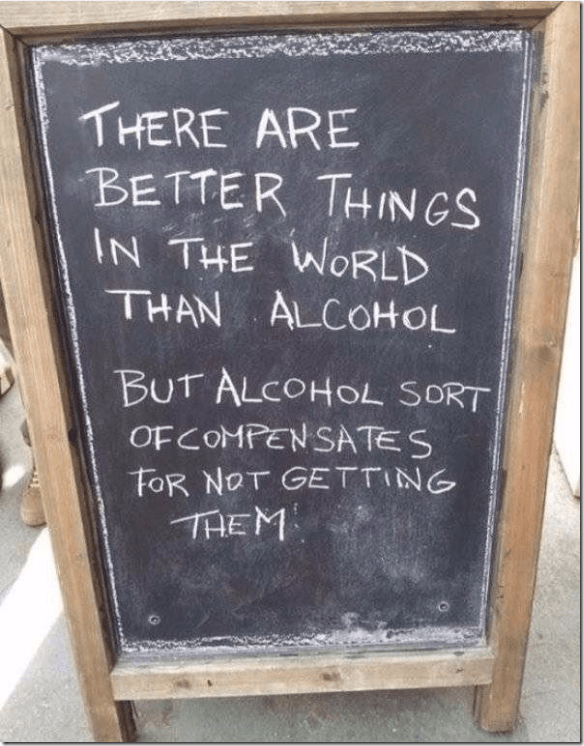 THERE ARE
BETTER THINGS
IN THE WORLD
THAN ALCOHOL
BUT ALCOHOL SORT
OF COMPENSATES
FOR NOT GETTING
THEM!